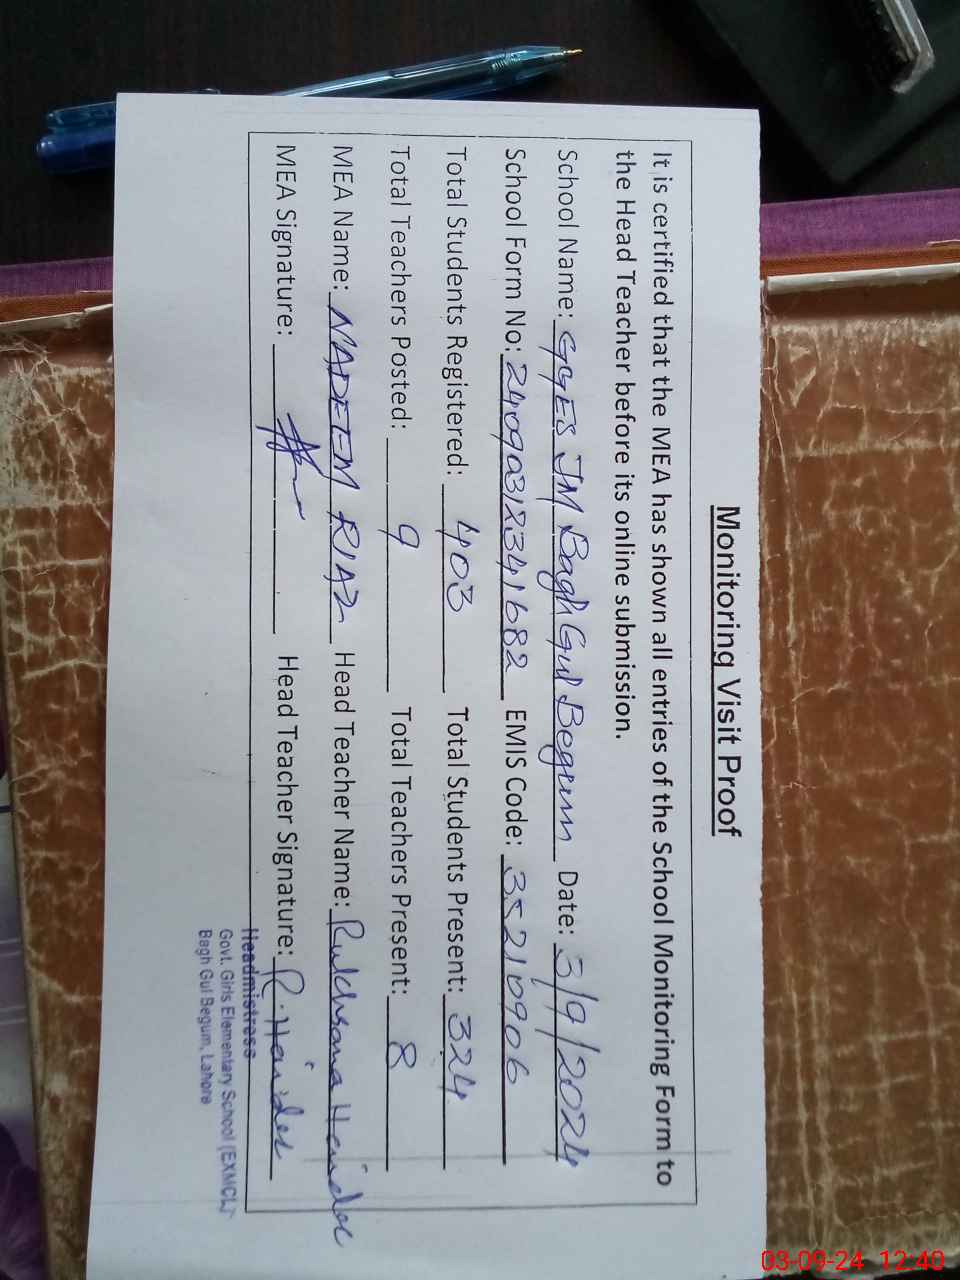 Monitoring Visit Proof
It is certified that the MEA has shown all entries of the School Monitoring Form to
the Head Teacher before its online submission.
School Name: GGES JM Bagh Gul Begum Date: 3/9/2024
School Form No: 24090312341682 EMIS Code: 35210906
Total Students Registered: 403 Total Students Present: 324
Total Teachers Posted: 9 Total Teachers Present: 8
MEA Name: NADEEM RIAZ Head Teacher Name: Rukhsana Haider
MEA Signature: Head Teacher Signature: R. Haider
Headmistress
Govt. Girls Elementary School (EXMCL)
Bagh Gul Begum, Lahore
03-09-24 12:40